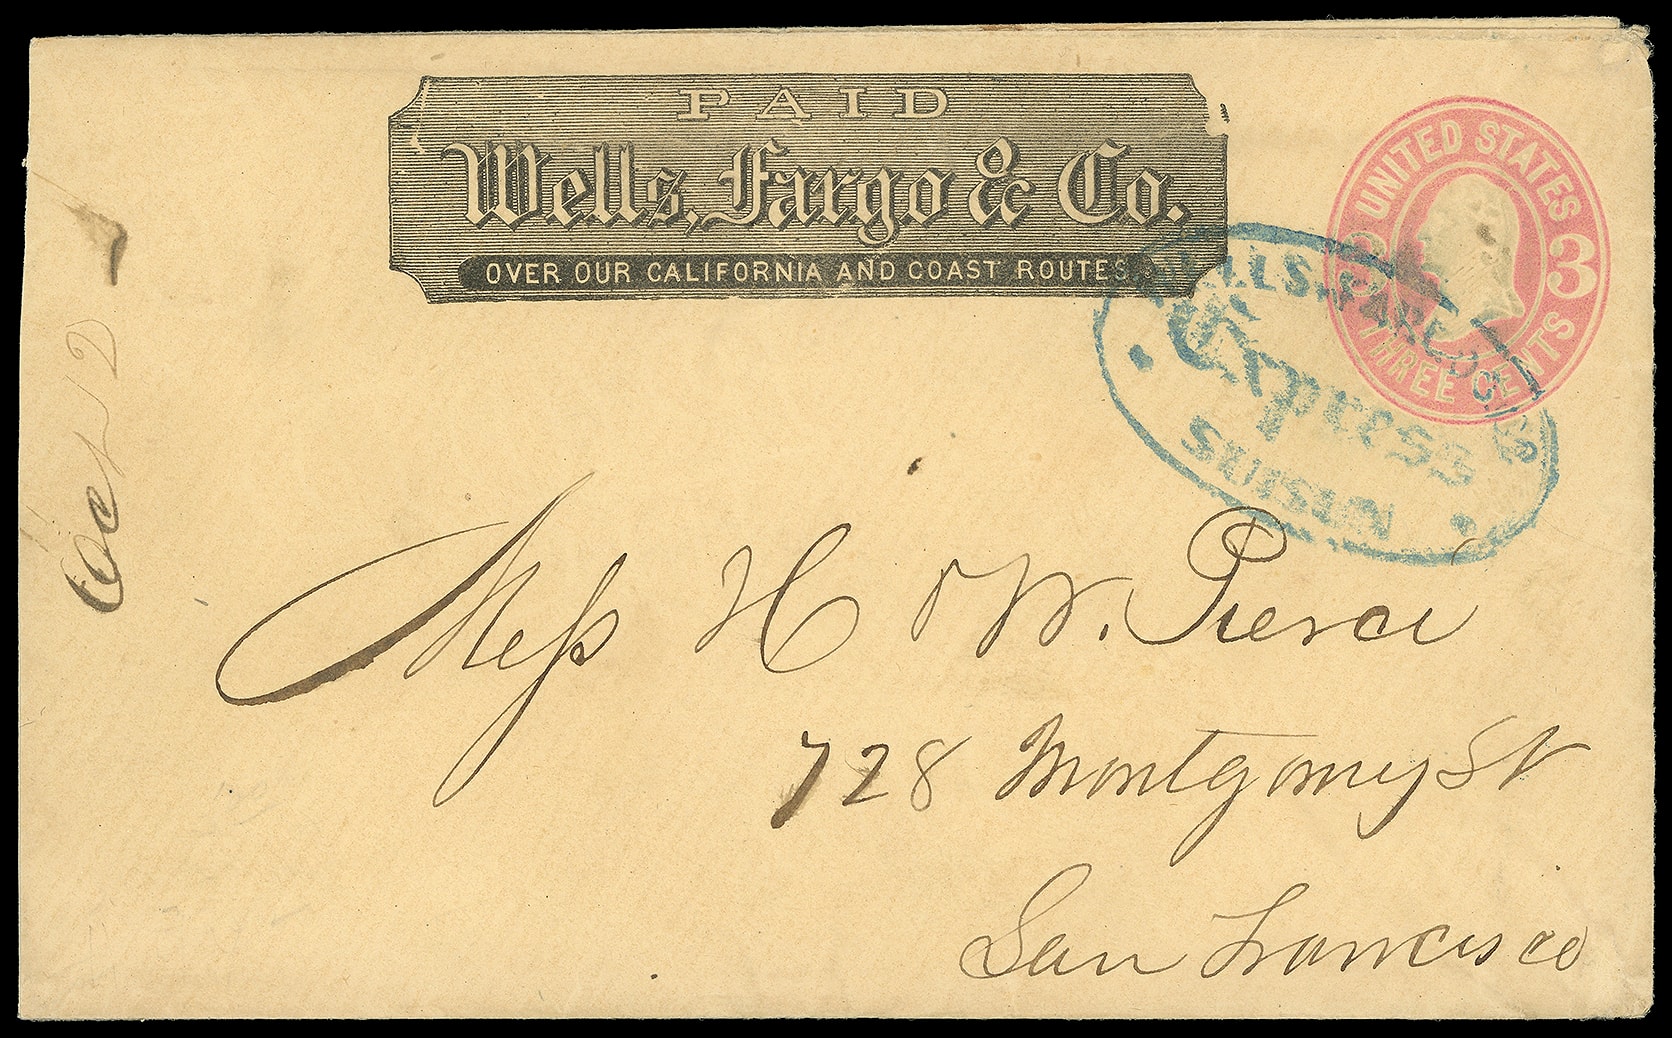 PAID
Wells, Fargo & Co.
OVER OUR CALIFORNIA AND COAST ROUTES.
UNITED STATES
3 3
THREE CENTS
WELLS, FARGO & CO'S
Express
Mess H W. Pierce
728 Montgomey St
San Francisco